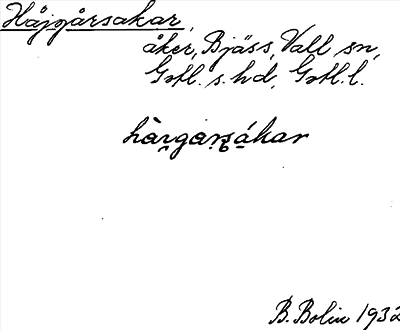 Håjgårsakar,
åker, Bjäss, Vall sn,
Gotl. s. hd, Gotl. l.
hàrgarsákar
B. Bolin 1932